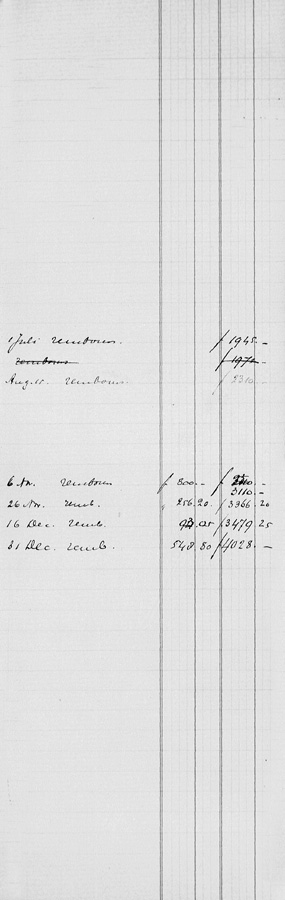 1 Juli rembours. ƒ 1945.–
rembours ƒ 1970.–
Aug. rembours. ƒ 2310.–
6 Nov. rembours ƒ 800.– ƒ
3110.–
26 Nov. remb. " 256.20. ƒ3366.20
16 Dec. remb. .05 ƒ3479.25
31 Dec. remb. 548.80 ƒ4028.–